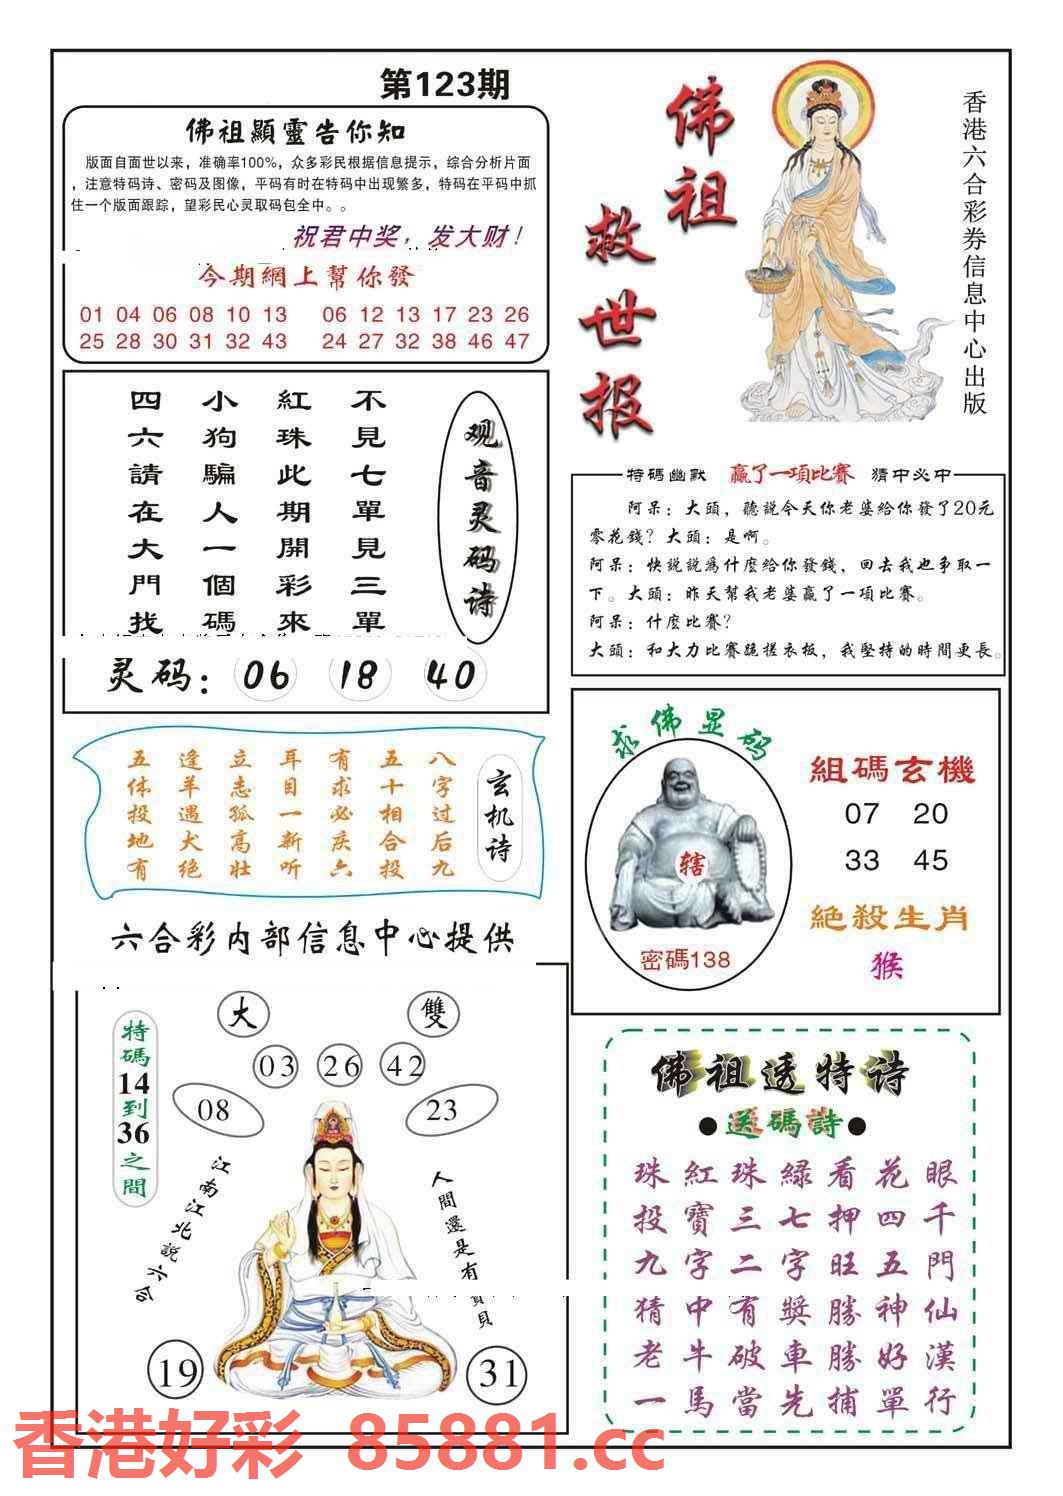 第123期
佛祖顯靈告你知
版面自面世以来，准确率100%，众多彩民根据信息提示，综合分析片面
，注意特码诗、密码及图像，平码有时在特码中出现繁多，特码在平码中抓
住一个版面跟踪，望彩民心灵取码包全中。。
祝君中奖，发大财！
今期網上幫你發
01 04 06 08 10 13 06 12 13 17 23 26
25 28 30 31 32 43 24 27 32 38 46 47
佛祖
救世报
香港六合彩券信息中心出版
观音灵码诗
不見七單見三單
紅珠此期開彩來
小狗騙人一個碼
四六請在大門找
灵码：06 18 40
特碼幽默 贏了一項比賽 猜中必中
阿呆：大頭，聽説今天你老婆給你發了20元
零花錢？大頭：是啊。
阿呆：快説説爲什麼給你發錢，回去我也争取一
下。大頭：昨天幫我老婆贏了一項比賽。
阿呆：什麼比賽？
大頭：和大力比賽跪搓衣板，我堅持的時間更長。
玄机诗
八字过后九
五十相合投
有求必灰六
耳目一新听
立志孤高壮
逢羊遇犬绝
五体投地有
六合彩内部信息中心提供
求佛显码
辖
密碼138
組碼玄機
07 20
33 45
絕殺生肖
猴
特碼14到36之間
大 雙
03 26 42
08 23
江南江北説六合
人間還是有寶貝
19 31
佛祖透特诗
●送碼詩●
珠紅珠緑看花眼
投寶三七押四千
九字二字旺五門
猜中有獎勝神仙
老牛破車勝好漢
一馬當先捕單行
香港好彩 85881.cc